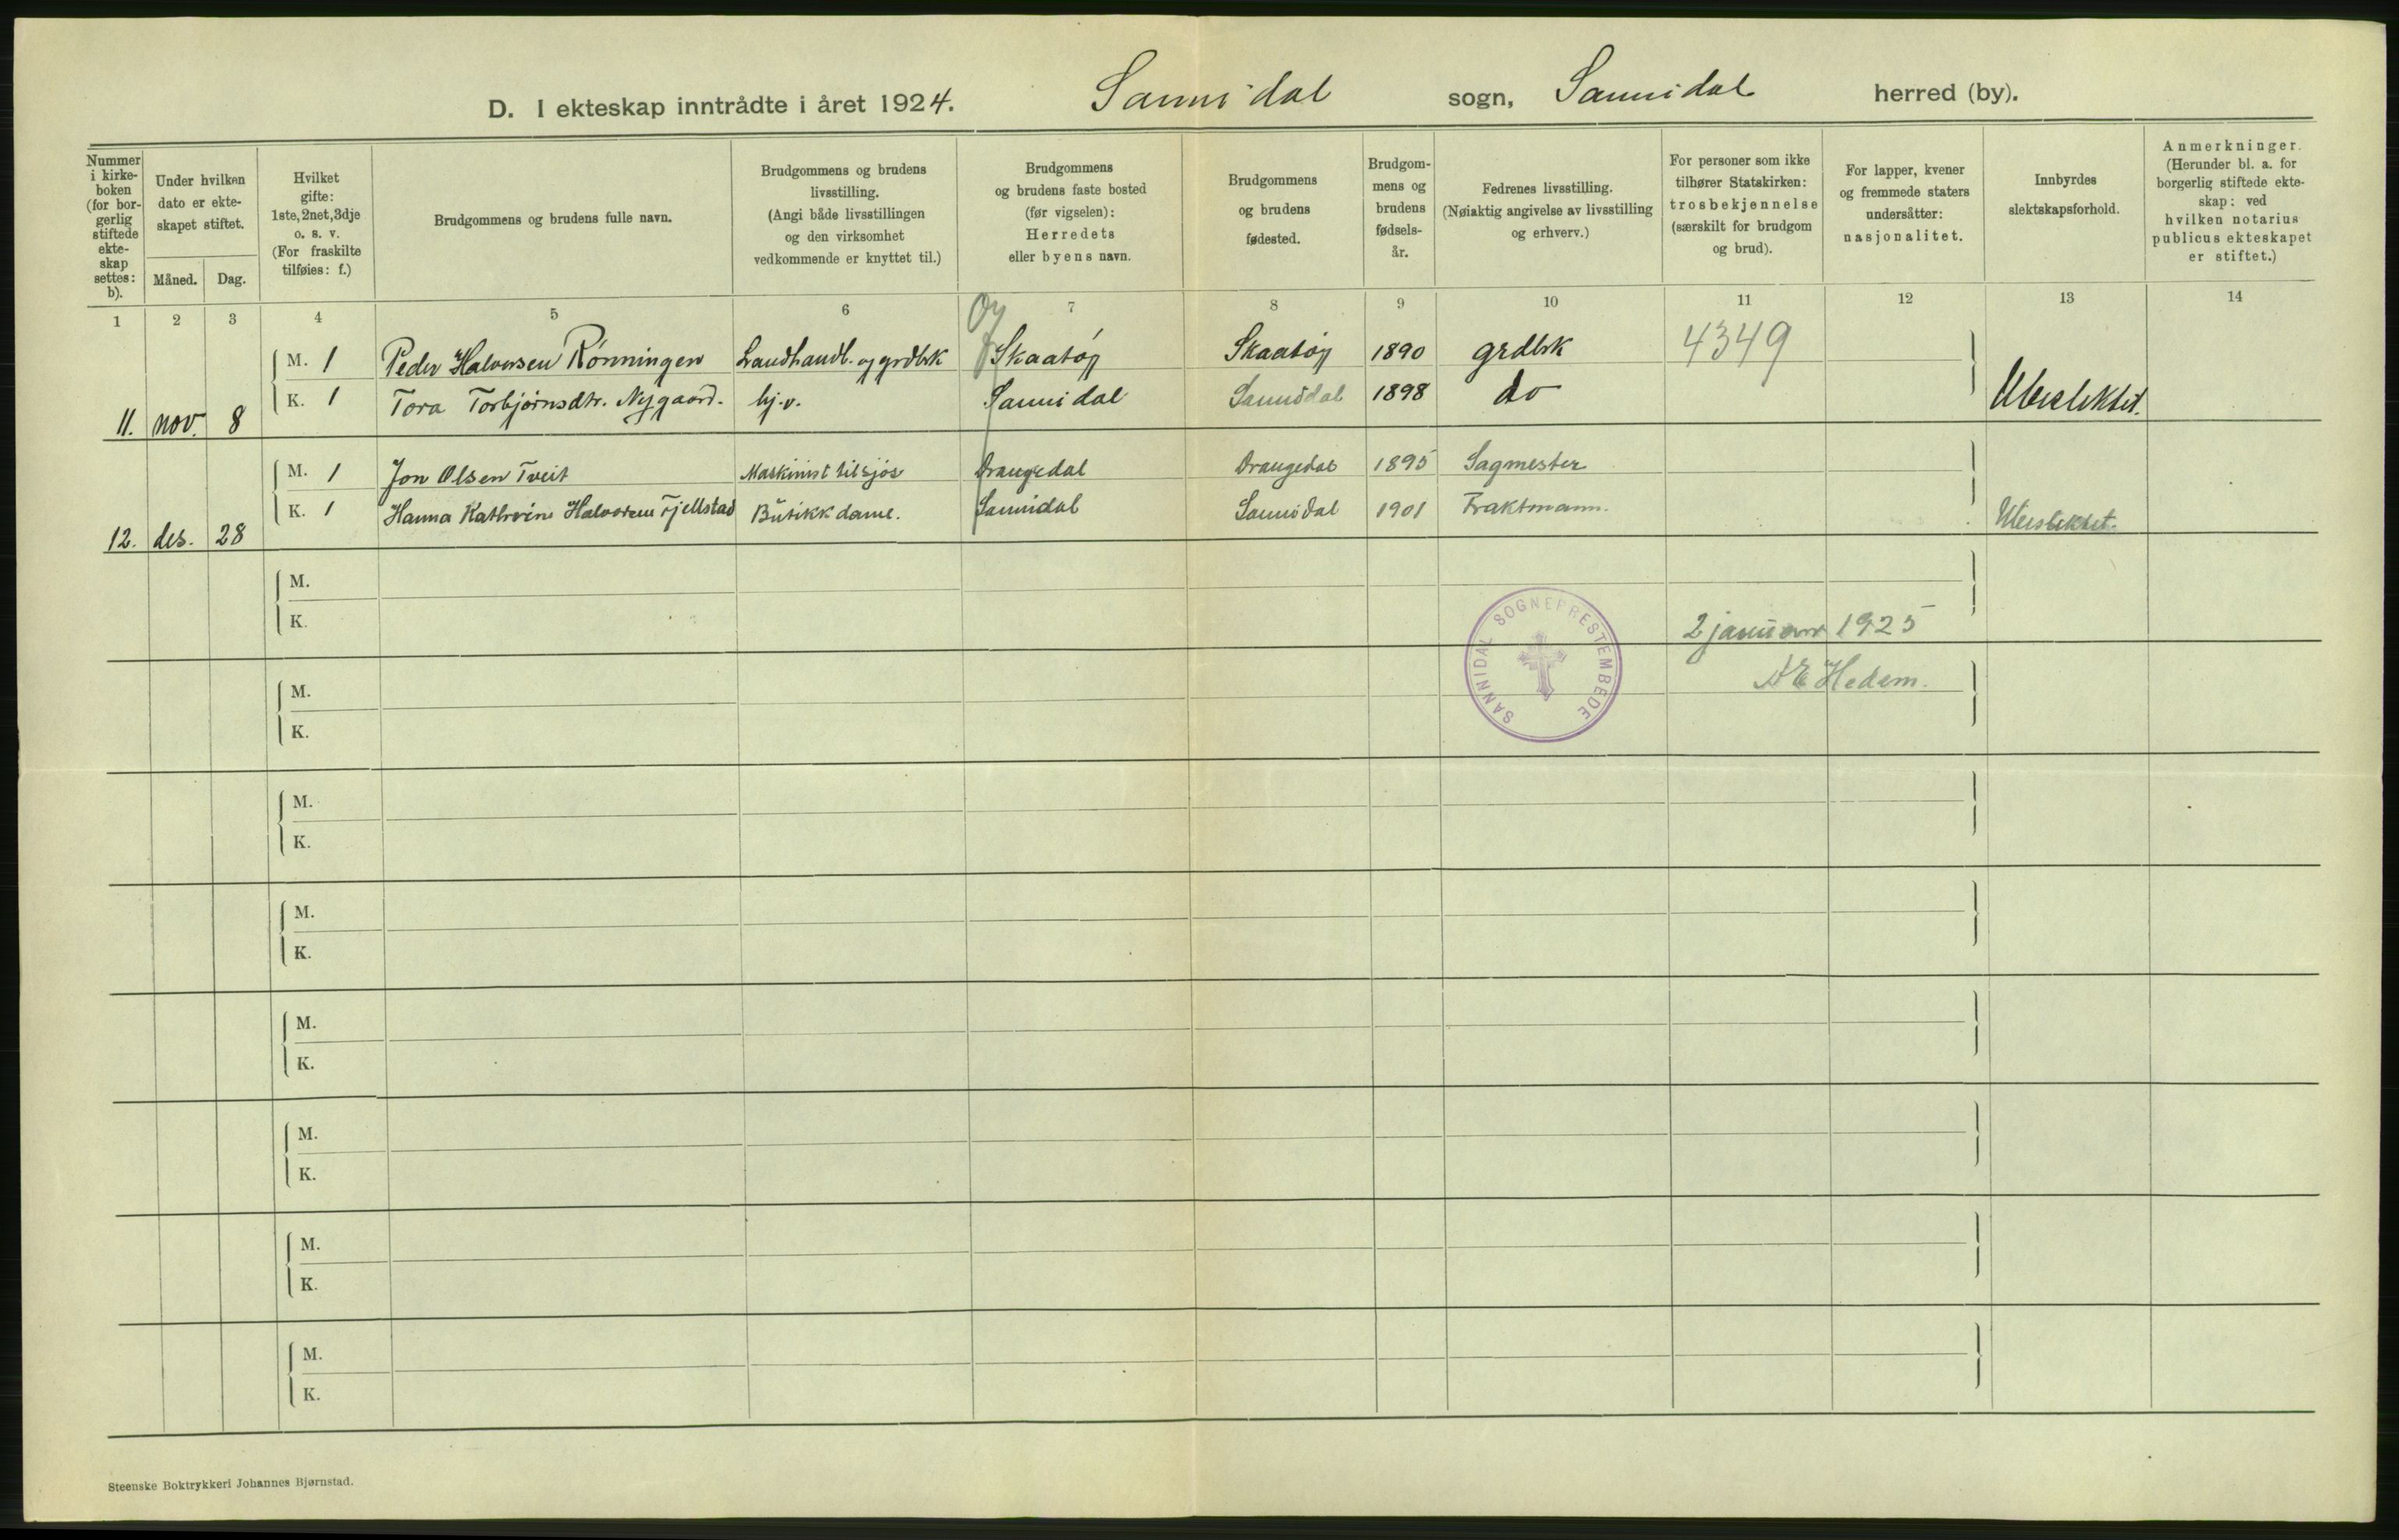 D. I ekteskap inntrådte i året 1924. Sannidal sogn, Sannidal herred (by).
Nummer i kirke- boken (for bor- gerlig stiftede ekte- skap settes: b).
Under hvilken dato er ekte- skapet stiftet.
Måned. Dag.
Hvilket gifte: 1ste, 2net, 3dje o. s. v. (For fraskilte tilføies: f.)
Brudgommens og brudens fulle navn.
Brudgommens og brudens livsstilling. (Angi både livsstillingen og den virksomhet vedkommende er knyttet til.)
Brudgommens og brudens faste bosted (før vigselen): Herredets eller byens navn.
Brudgommens og brudens fødested.
Brudgom- mens og brudens fødsels- år.
Fedrenes livsstilling. (Nøiaktig angivelse av livsstilling og erhverv.)
For personer som ikke tilhører Statskirken: trosbekjennelse (særskilt for brudgom og brud).
For lapper, kvener og fremmede staters undersåtter: nasjonalitet.
Innbyrdes slektskapsforhold.
Anmerkninger. (Herunder bl. a. for borgerlig stiftede ekte- skap: ved hvilken notarius publicus ekteskapet er stiftet.)
1 2 3 4 5 6 7 8 9 10 11 12 13 14
M. 1 Peder Halvorsen Rønningen Landhandl. og grdbrk Skaatøy Skaatøy 1890 grdbrk 4349
K. 1 Tora Torbjørnsdtr. Nygaard. hj.v. Sannidal Sannidal 1898 do
11. nov. 8 Ubeslektet.
M. 1 Jon Olsen Tveit Maskinist tilsjøs Drangedal Drangedal 1895 Sagmester
K. 1 Hanna Kathrine Halvorsen Fjellstad Butikkdame. Sannidal Sannidal 1901 Fraktmann.
12. des. 28 Ubeslektet.
M.
K.
SANNIDAL SOGNEPRESTEMBEDE
2 januar 1925
Hedem.
M.
K.
M.
K.
M.
K.
M.
K.
M.
K.
M.
K.
M.
K.
Steenske Boktrykkeri Johannes Bjørnstad.